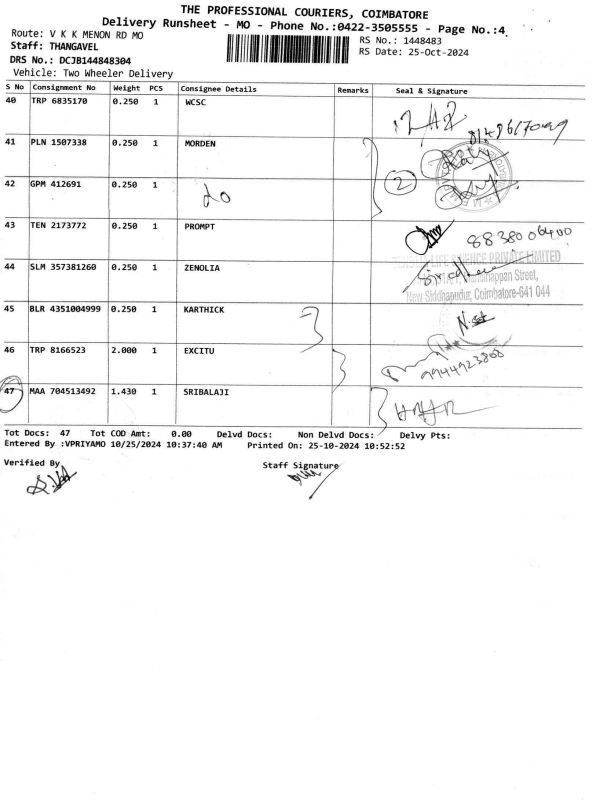 THE PROFESSIONAL COURIERS, COIMBATORE
Delivery Runsheet - MO - Phone No.:0422-3505555 - Page No.:4
Route: V K K MENON RD MO
RS No.: 1448483
Staff: THANGAVEL
RS Date: 25-Oct-2024
DRS No.: DCJB144848304
Vehicle: Two Wheeler Delivery
S No Consignment No Weight PCS Consignee Details Remarks Seal & Signature
40 TRP 6835170 0.250 1 WCSC
41 PLN 1507338 0.250 1 MORDEN
42 GPM 412691 0.250 1 2
43 TEN 2173772 0.250 1 PROMPT 8838006400
44 SLM 357381260 0.250 1 ZENOLIA
LIFE SCIENCE PRIVATE LIMITED
Street,
New Siddhapudur, Coimbatore-641 044
45 BLR 4351004999 0.250 1 KARTHICK
46 TRP 8166523 2.000 1 EXCITU
9944923808
47 MAA 704513492 1.430 1 SRIBALAJI
Tot Docs: 47 Tot COD Amt: 0.00 Delvd Docs: Non Delvd Docs: Delvy Pts:
Entered By :VPRIYAMO 10/25/2024 10:37:40 AM Printed On: 25-10-2024 10:52:52
Verified By Staff Signature